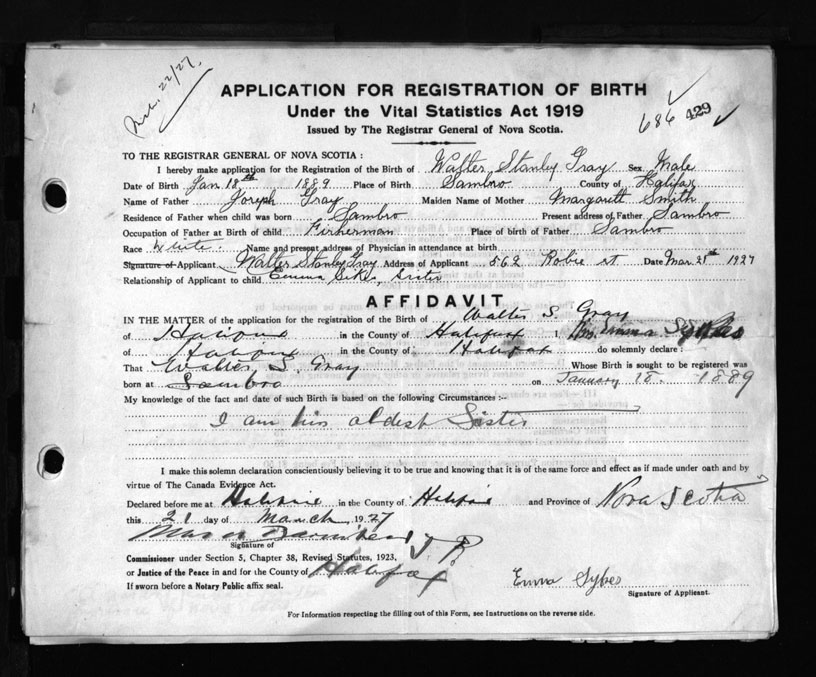 Mch. 22/27.
APPLICATION FOR REGISTRATION OF BIRTH
Under the Vital Statistics Act 1919
Issued by The Registrar General of Nova Scotia.
686 429
TO THE REGISTRAR GENERAL OF NOVA SCOTIA :
I hereby make application for the Registration of the Birth of Walter Stanley Gray Sex Male
Date of Birth Jan 18th 1889 Place of Birth Sambro County of Halifax
Name of Father Joseph Gray Maiden Name of Mother Margarett Smith
Residence of Father when child was born Sambro Present address of Father Sambro
Occupation of Father at Birth of child Fisherman Place of birth of Father Sambro
Race White. Name and present address of Physician in attendance at birth
Signature of Applicant Walter Stanley Gray Address of Applicant 562 Robie st Date Mar. 21st 1927
Relationship of Applicant to child Emma Sikes, Sister
AFFIDAVIT
IN THE MATTER of the application for the registration of the Birth of Walter S. Gray
of in the County of Halifax I, Mrs. Emma Sykes
of in the County of Halifax do solemnly declare :
That Walter S. Gray Whose Birth is sought to be registered was
born at Sambro on January 18. 1889
My knowledge of the fact and date of such Birth is based on the following Circumstances :-
I am his oldest Sister
I make this solemn declaration conscientiously believing it to be true and knowing that it is of the same force and effect as if made under oath and by
virtue of The Canada Evidence Act.
Declared before me at in the County of and Province of Nova Scotia
this 21 day of March 1927
J. P.
Signature of
Commissioner under Section 5, Chapter 38, Revised Statutes, 1923,
or Justice of the Peace in and for the County of Halifax
If sworn before a Notary Public affix seal.
Emma Sykes
Signature of Applicant.
For Information respecting the filling out of this Form, see Instructions on the reverse side.